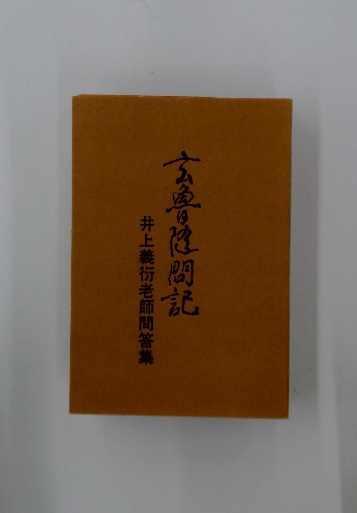 玄魯随聞記
井上義衍老師問答集